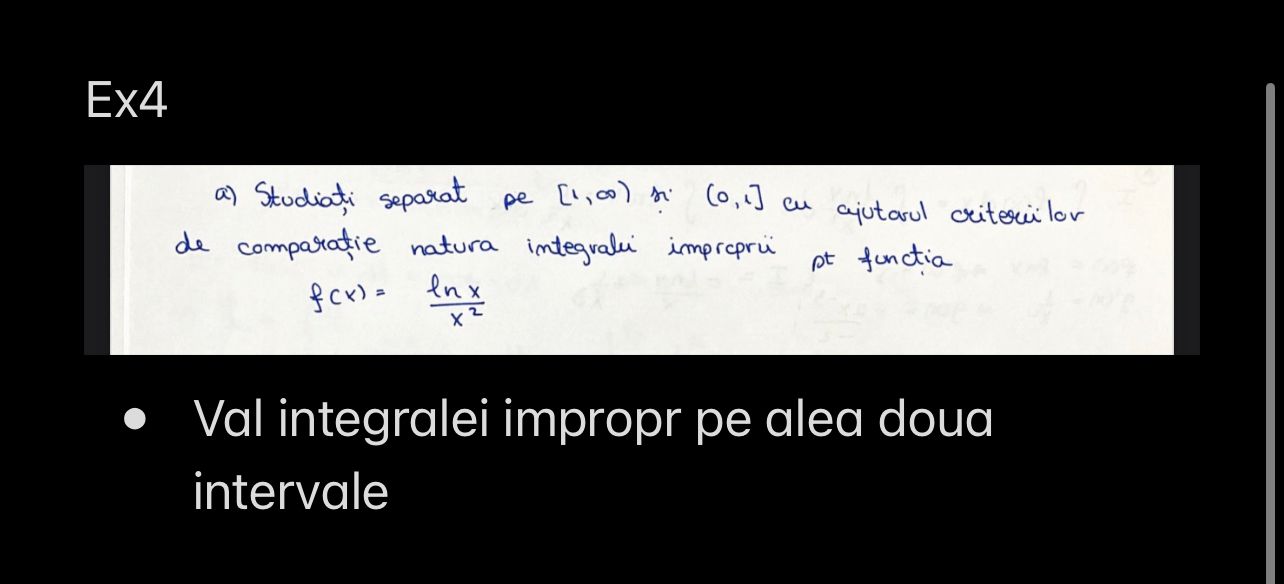 Ex4
a) Studiați separat pe [1,∞) și (0,1] cu ajutorul criteriilor
de comparație natura integralei improprii pt funcția
f(x) = ln x / x²
• Val integralei impropr pe alea doua
intervale